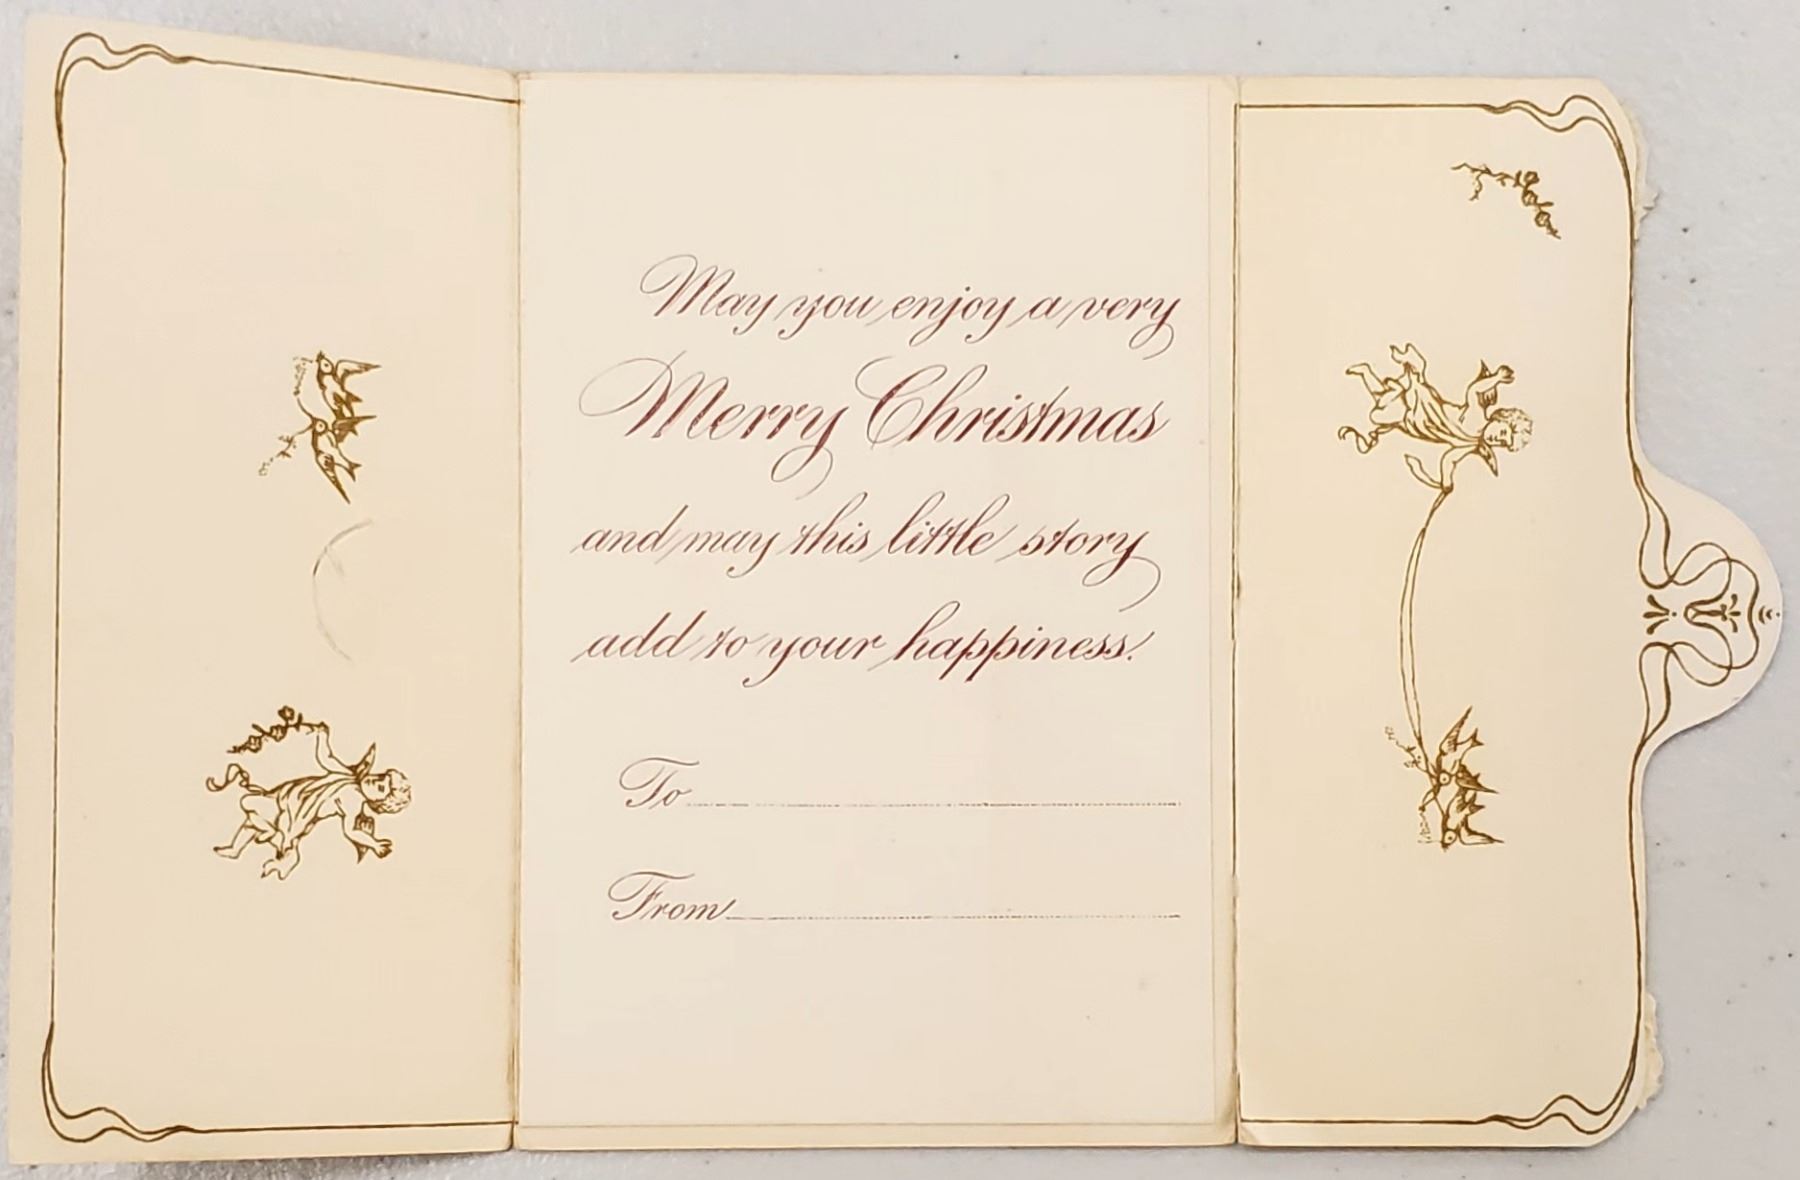 May you enjoy a very
Merry Christmas
and may this little story
add to your happiness.
To
From